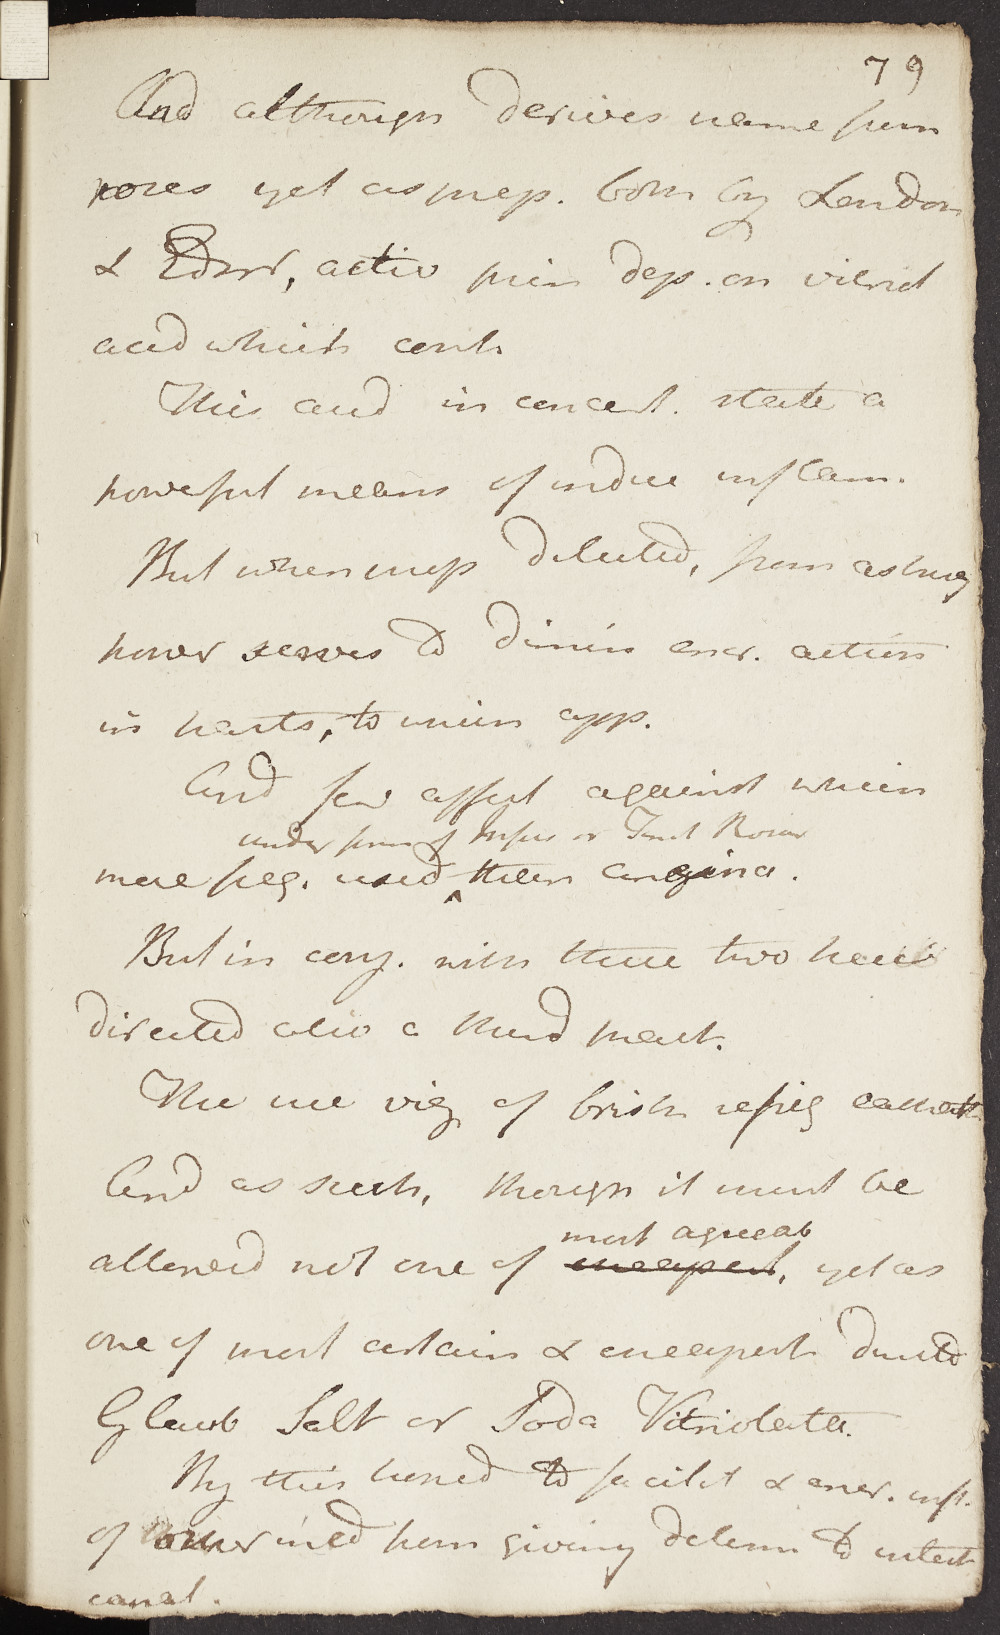 79
And although derives name from
roses yet as prep. both by London
& Edinr, activ prin dep. on vitriol
acid which cont.
This acid in concent. state a
powerful means of induc inflam.
But when prop diluted, from astring
power serves to dimin encr. action
in hearts, to which app.
And few affect against which
under form of Infus or Tinct Rosar
more freq. used than angina.
But in conj. with these two heads
directed also a third pract.
The use vig of brisk refrig cathart
And as such, though it must be
allowed not one of most agreeab
cheapest, yet as
one of most certain & cheapest directd
Glaub Salt or Soda Vitriolata.
By this hoped to facilit & encr. infl.
of other med from giving determ to intest
canal.